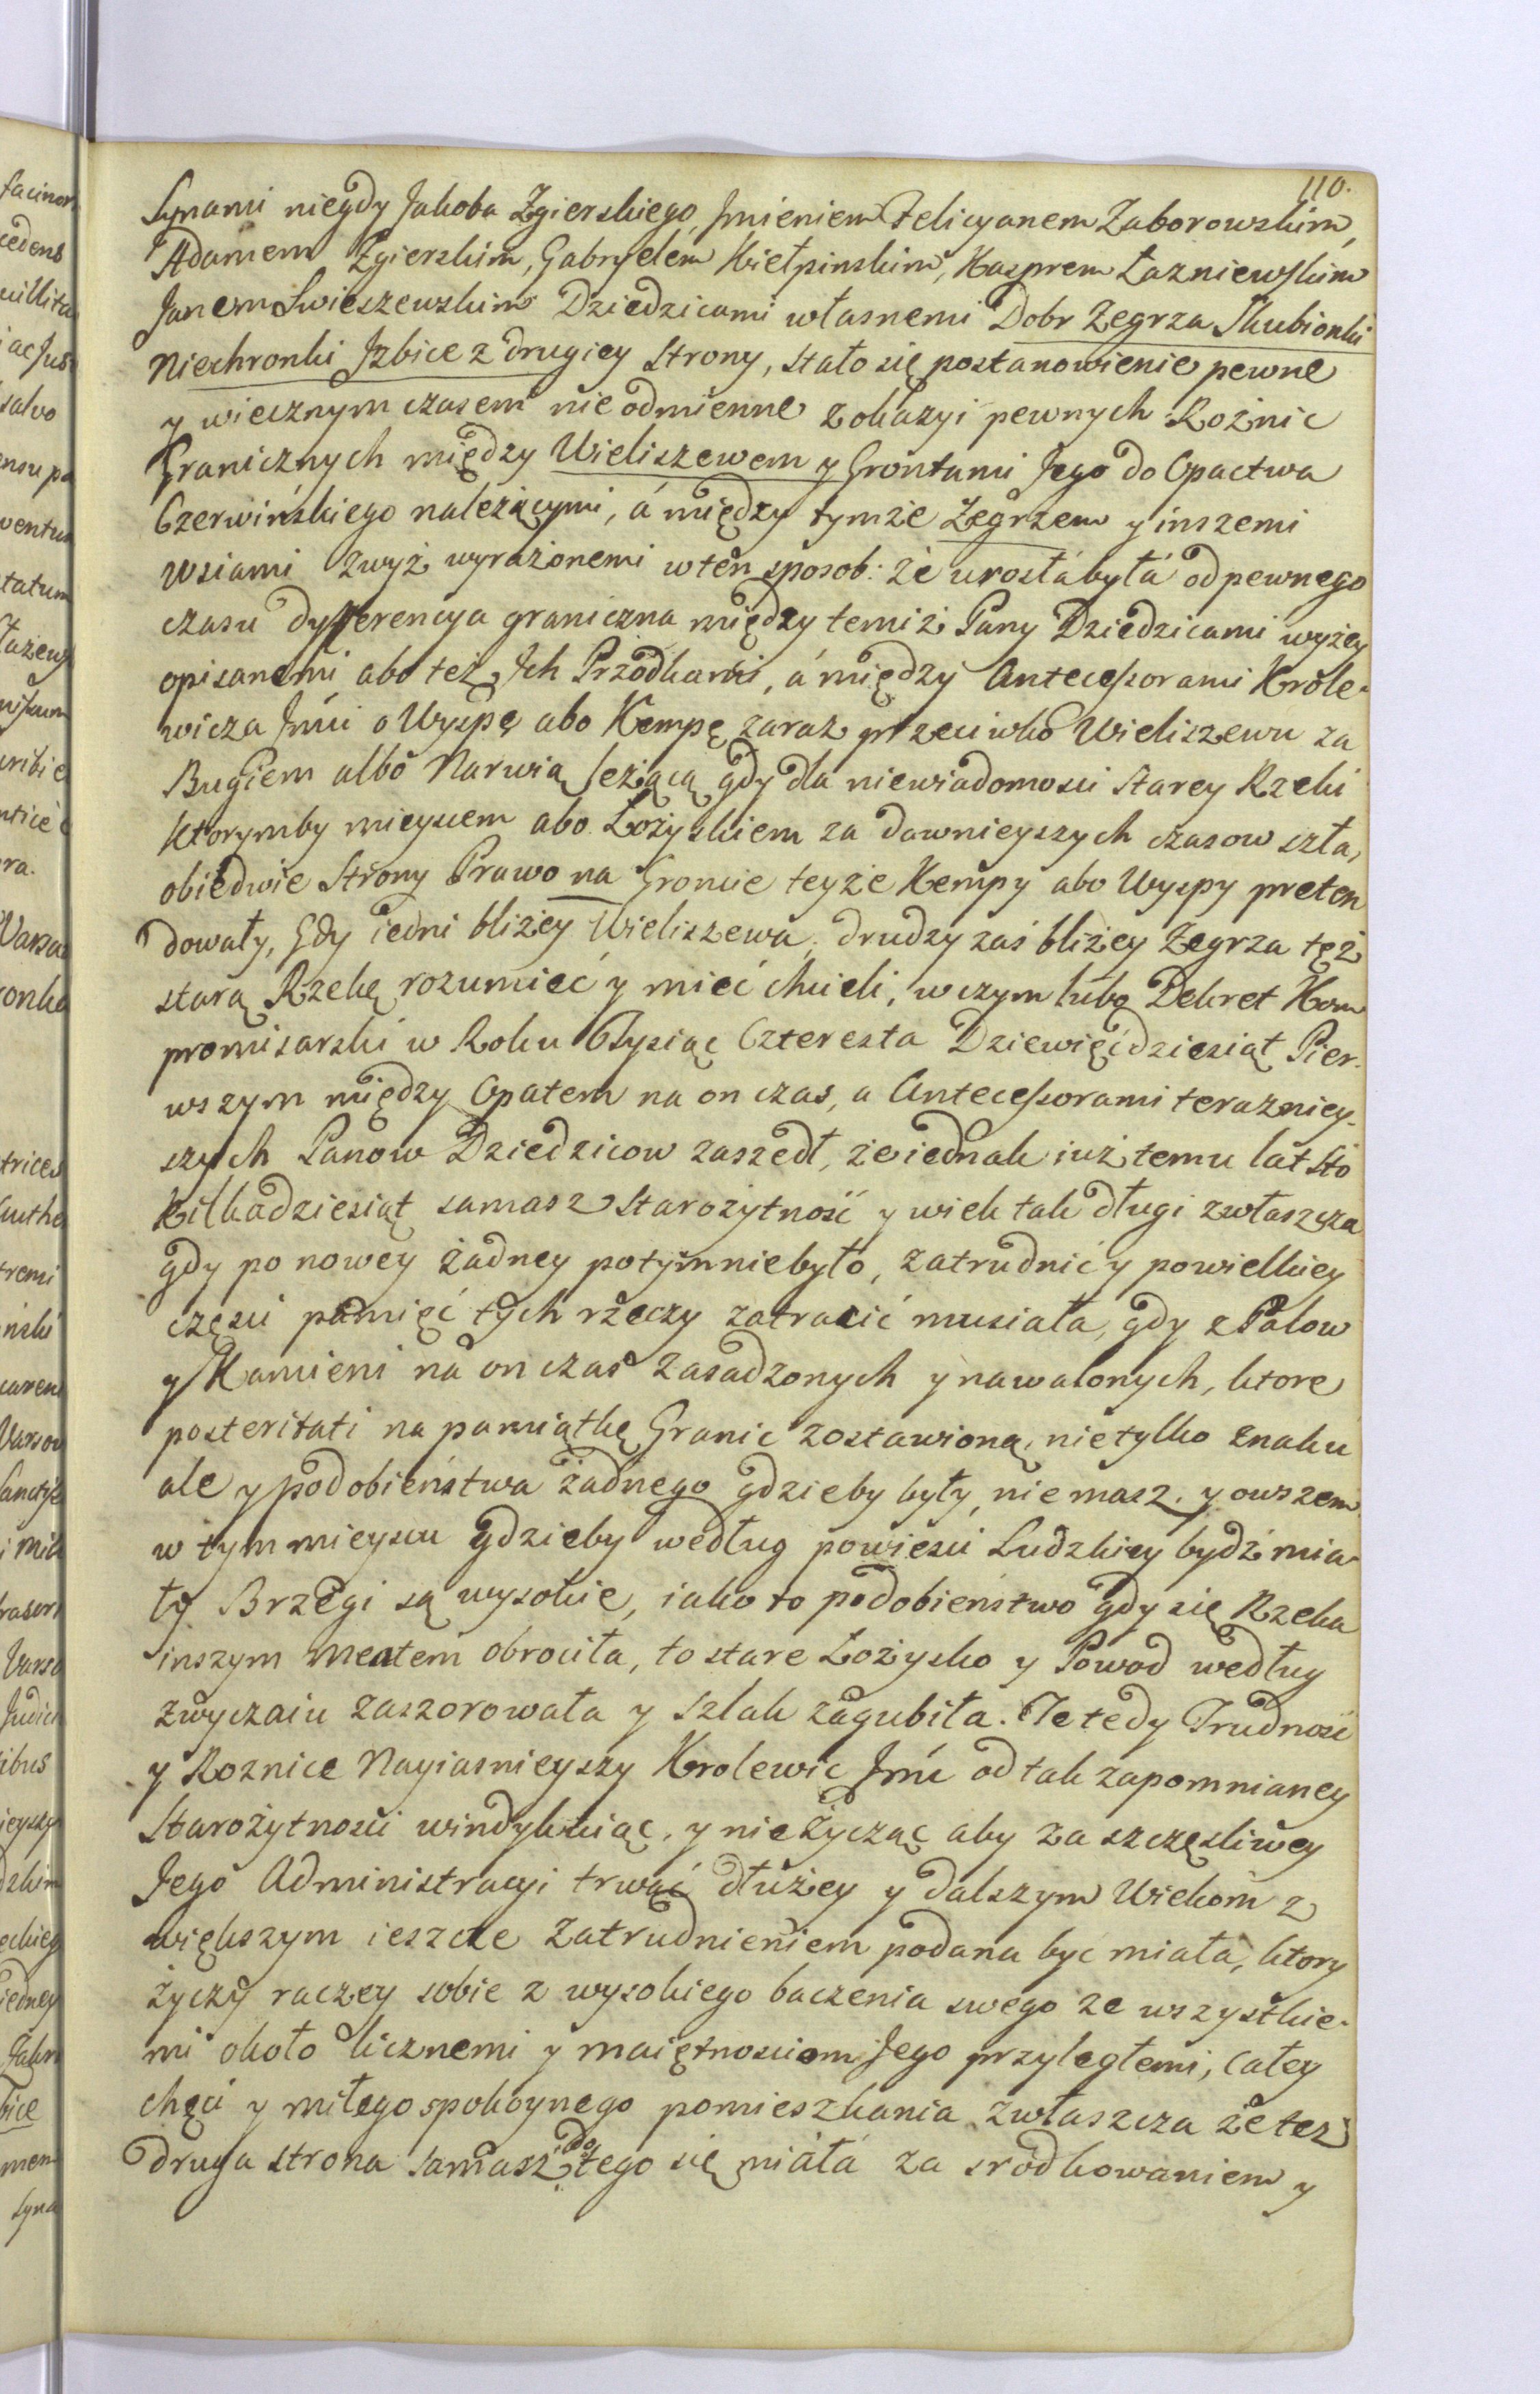 110.
Synami niegdy Jakoba Zgierskiego, Jmieniem Felicyanem Zaborowskim,
Adamem Zgierskim, Gabryelem Kiełpinskim, Kasprem Łazniewskim
Janem Swieszewskim Dziedzicami własnemi Dobr Zegrza Skubionki
Niechronki Jzbice z drugiey Strony, stało się postanowienie pewne
y wiecznym czasem nie odmienne z okazyi pewnych Rożnic
Granicznych między Wieliszewem y Grontami Jego do Opactwa
Czerwińskiego należącymi, á między tymże Zegrzem y inszemi
Wsiami zwyż wyrażonemi w ten sposob: że urosłá byłá od pewnego
czasu dyfferencya graniczna między temiż Pany Dziedzicami wyżey
opisanemi abo też Jch Przodkami, á między Antecessorami Krole-
wicza Jmći o Wyspę abo Kempę zaraz przeciwko Wieliszewu za
Bugiem albo Narwią leżącą gdy dla niewiadomosci starey Rzeki
ktorymby mieyscem abo Łożyskiem za dawnieyszych czasow szła,
obiedwie Strony Prawo na Groncie teyże Kempy abo Wyspy preten
dowały, Gdy iedni bliżey Wieliszewa, drudzy zaś bliżey Zegrza tęż
starą Rzekę rozumieć y mieć chcieli, w czym lubo Dekret Kom
promisarski w Roku Tysiąc Czteresta Dziewięćdziesiąt Pier-
wszym między Opatem na on czas, a Antecessorami teraznieγ-
szych Panow Dziedzicow zaszedł, że iednak iuż temu lat Sto
kilkadziesiąt samasz Starożytność y wiek tak długi zwłaszcza
gdy po nowey żadney potym niebyło, zatrudnić y powielkiey
części pamięć tych rzeczy zatracić musiała, gdy z Palow
y Kamieni na on czas zasadzonych y nawalonych, ktore
posteritati na pamiątkę Granic zostawioną, nie tylko znaku
ale y podobieństwa żadnego gdzieby były, niemasz. y owszem
w tym mieyscu gdzieby według powieści Ludzkiey bydź mia-
ły Brzegi są wysokie, iako to podobieństwo gdy się Rzeka
inszym meatem obrociła, to stare Łożysko y Powod według
zwyczaiu zaszorowała y szlak zagubiła. Te tedy Trudność
y Roznice Nayiasnieyszy Krolewic Jmć od tak zapomnianey
Starożytności windykuiąc, y nieżycząc aby za szczęsliwey
Jego Administracyi trwáć dłużey y dalszym Wiekom z
większym ieszcze zatrudnieniem podana byc miała, ktory
życzy raczey sobie z wysokiego baczenia swego ze wszystkie-
mi około licznemi y maiętnosciom Jego przyległemi, całey
chęci y miłego spokoynego pomieszkania zwłaszcza że też
druga strona samasz do tego się miáłá za srodkowaniem y